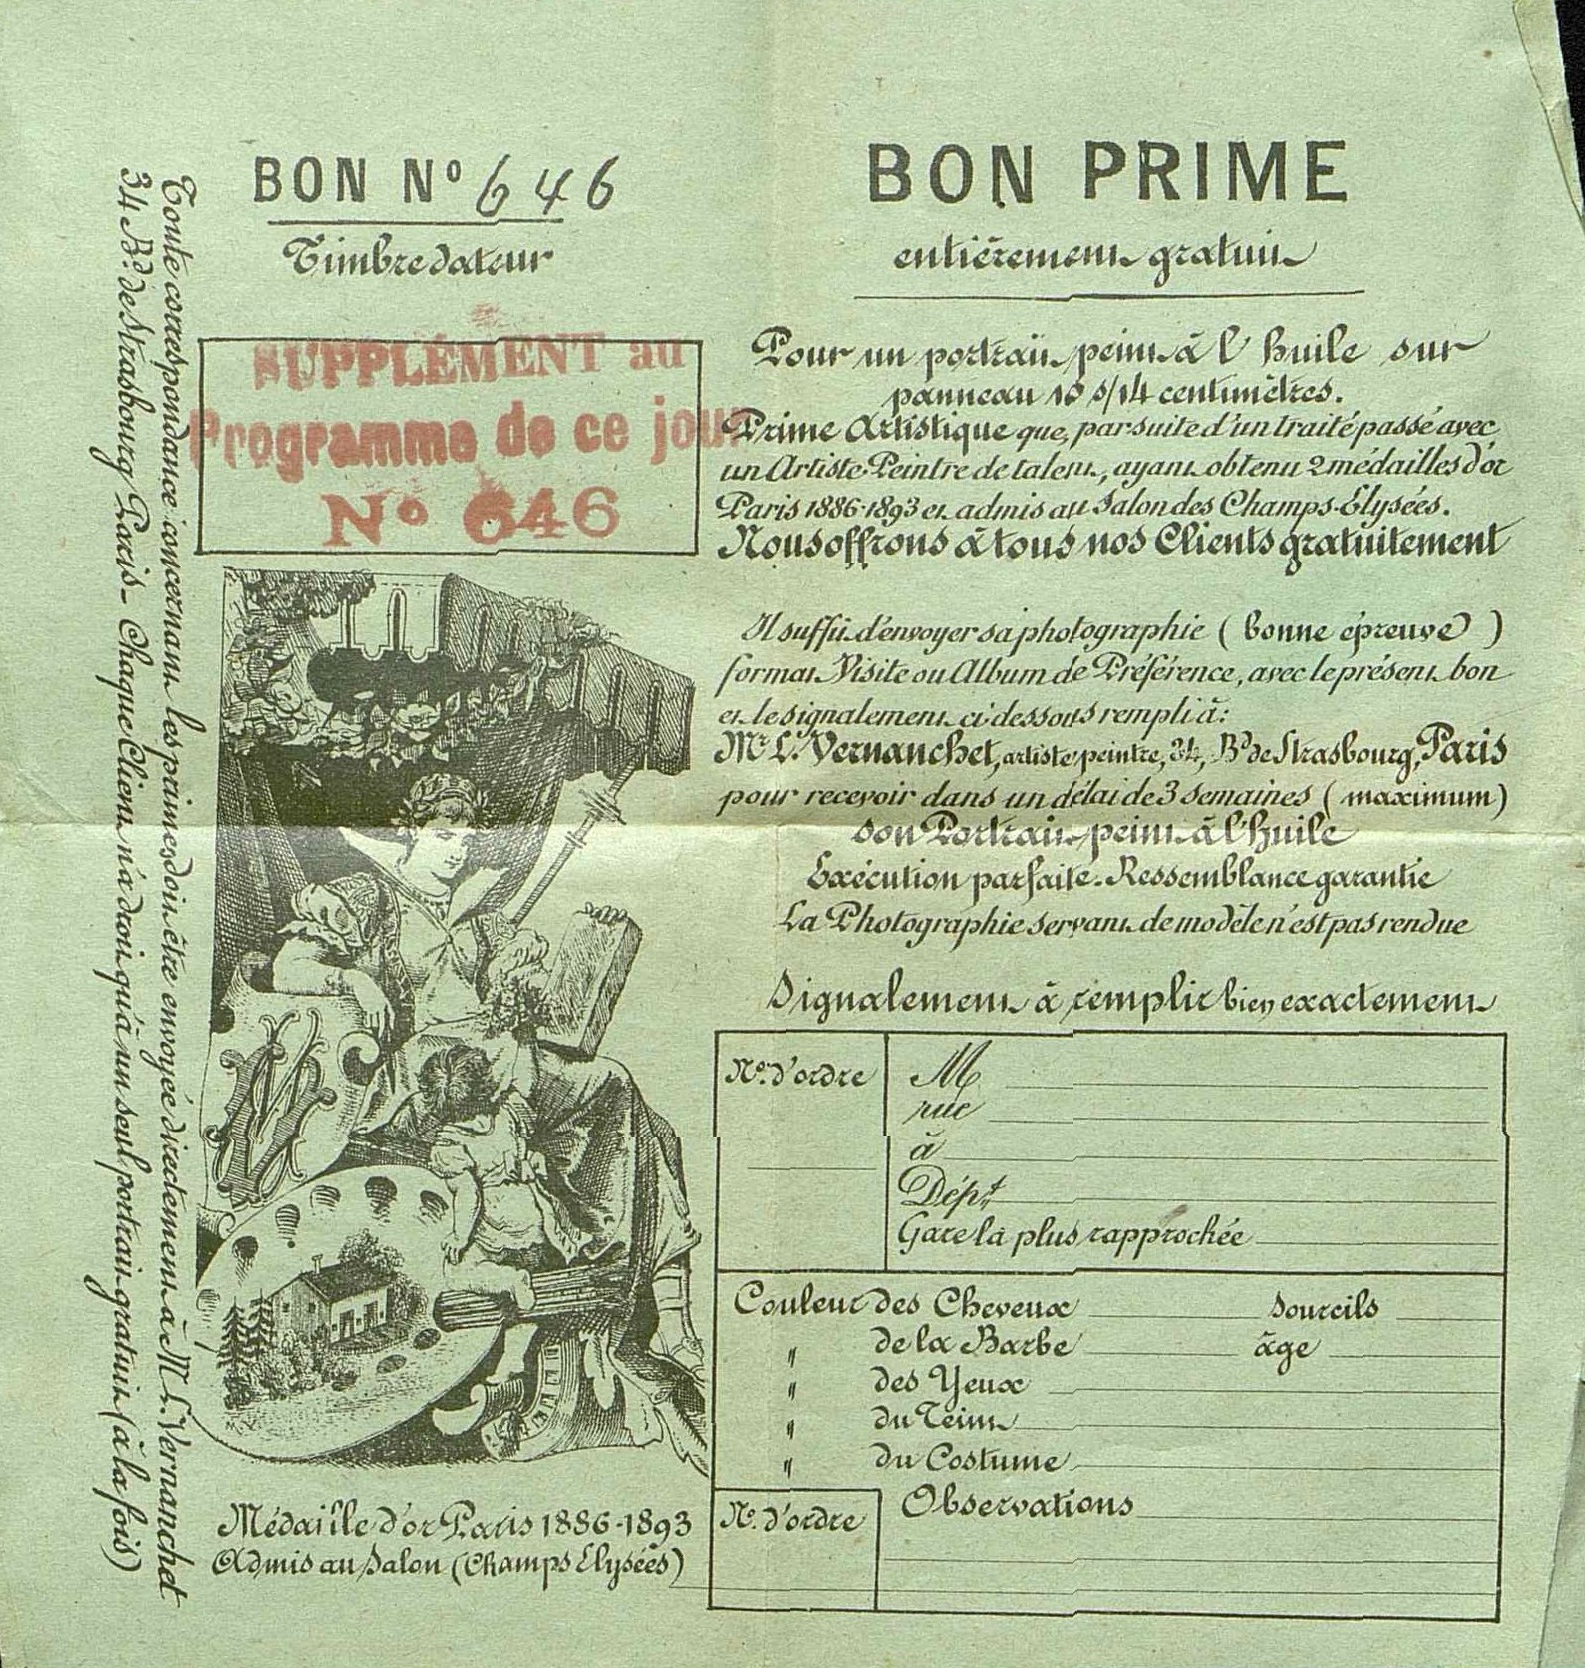 BON Nº 646
Timbre dateur
SUPPLÉMENT au
Programme de ce jour
Nº 646
Toute correspondance concernant les primes doit être envoyée directement à M. L. Vernanchet
34 Bd. de Strasbourg Paris - Chaque Client n'a droit qu'à un seul portrait gratuit (à la fois)
Médaille d'or Paris 1886-1893
Admis au Salon (Champs Elysées)
BON PRIME
entièrement gratuit
Pour un portrait peint à l'huile sur
panneau 10 s/14 centimètres.
Prime Artistique que, par suite d'un traité passé avec
un Artiste Peintre de talent, ayant obtenu 2 médailles d'or
Paris 1886-1893 et admis au Salon des Champs-Elysées.
Nous offrons à tous nos Clients gratuitement
Il suffit d'envoyer sa photographie (bonne épreuve)
format Visite ou Album de Préférence, avec le présent bon
et le signalement ci dessous rempli à:
Mr. L. Vernanchet, artiste peintre, 34, Bd de Strasbourg, Paris
pour recevoir dans un délai de 3 semaines (maximum)
son Portrait peint à l'huile
Exécution parfaite. Ressemblance garantie
La Photographie servant de modèle n'est pas rendue
Signalement à remplir bien exactement
No. d'ordre
M
rue
à
Dépt
Gare la plus rapprochée
Couleur des Cheveux sourcils
" de la Barbe âge
" des Yeux
" du Teint
" du Costume
No. d'ordre
Observations